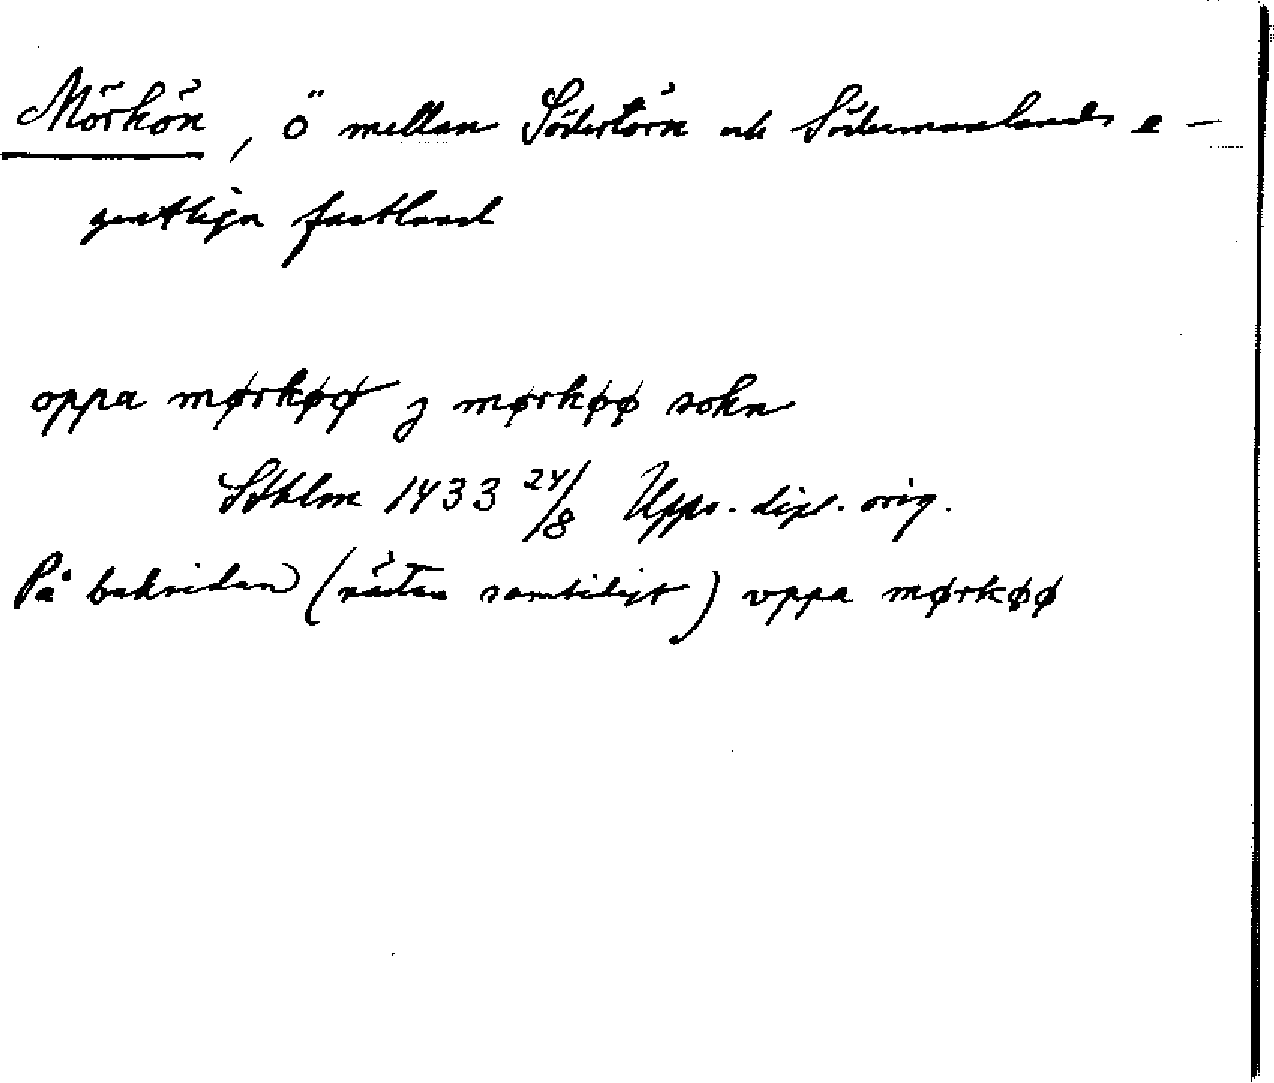 Mörkön, ö mellan Södertörn och Södermanlands e-
gentliga fastland
oppa mørkøø j mørkøø sokn
Sthlm 1433 24/8 Upps. dipl. orig.
På baksidan (nästan samtidigt) vppa mørkøø